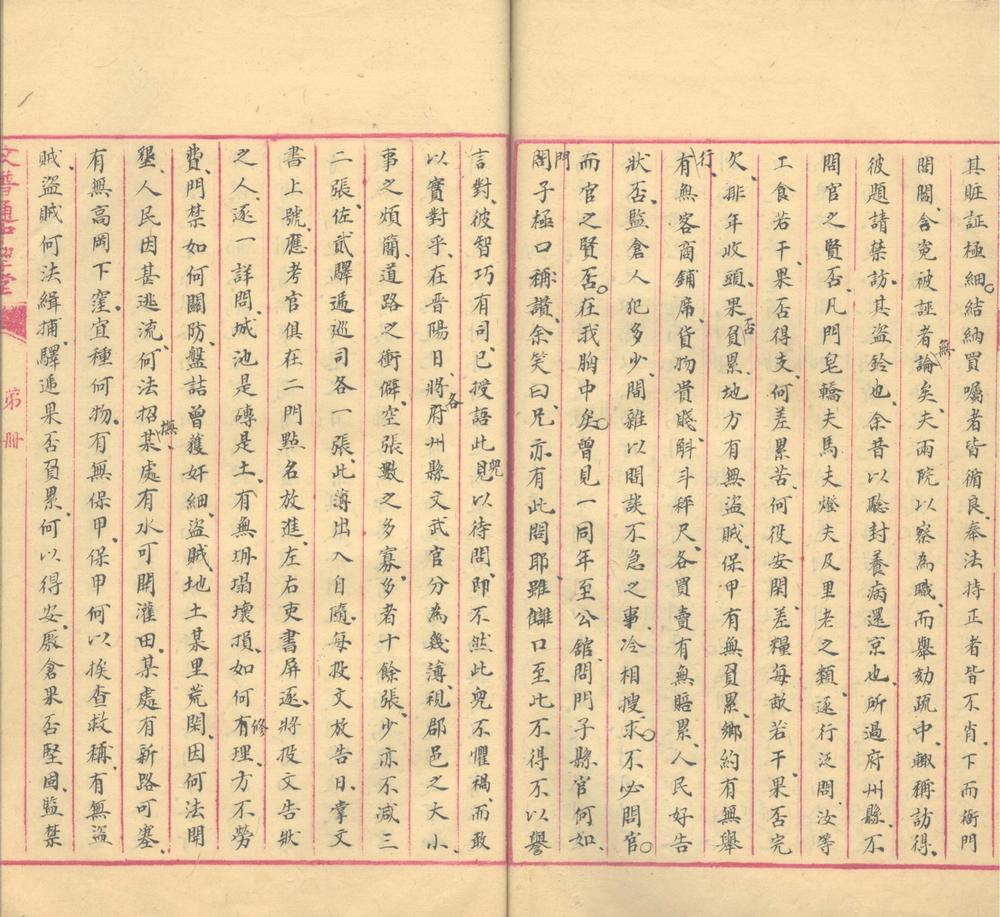 其賍証極細結納買囑者皆循良奉法持正者皆不肖下而衙門
閭閻含寃被誣者無論矣夫兩院以察為職而舉劾疏中輙稱訪得
彼題請禁訪其盜鈴也余昔以驗封養病還京也所過府州縣不
問官之賢否凡門皂轎夫馬夫燈夫及里老之類逐行泛問汝等
工食若干果否得支何差累苦何役安閑差糧每畝若干果否完
欠排年收頭果否負累地方有無盜賊保甲有無負累鄉約有無舉
行有無客商鋪席貨物貴賤斛斗秤尺各買賣有無賠累人民好告
狀否監倉人犯多少間雜以閒談不急之事冷相搜求不必問官
而官之賢否在我胸中矣曾見一同年至公館問門子縣官何如
門子極口稱讚余笑曰兄亦有此問耶雖讎口至此不得不以譽
言對彼智巧有司已授語此輩以待問即不然此輩不懼禍而敢
以實對乎在晋陽日將各府州縣文武官分為幾薄視郡邑之大小
事之煩簡道路之衝僻空張數之多寡多者十餘張少亦不減三
二張佐貳驛遞巡司各一張此薄出入自隨每投文放告日掌文
書上號應考官俱在二門點名放進左右吏書屏逐將投文告狀
之人逐一詳問城池是磚是土有無坍塌壞損如何修理方不勞
費門禁如何關防盤詰曾獲奸細盜賊地土某里荒閑因何法開
墾人民因甚逃流何法招撫某處有水可開灌田某處有新路可塞
有無高岡下窪宜種何物有無保甲保甲何以挨查救稱有無盜
賊盜賊何法緝捕驛遞果否負累何以得安廒倉果否堅固監禁
第 冊